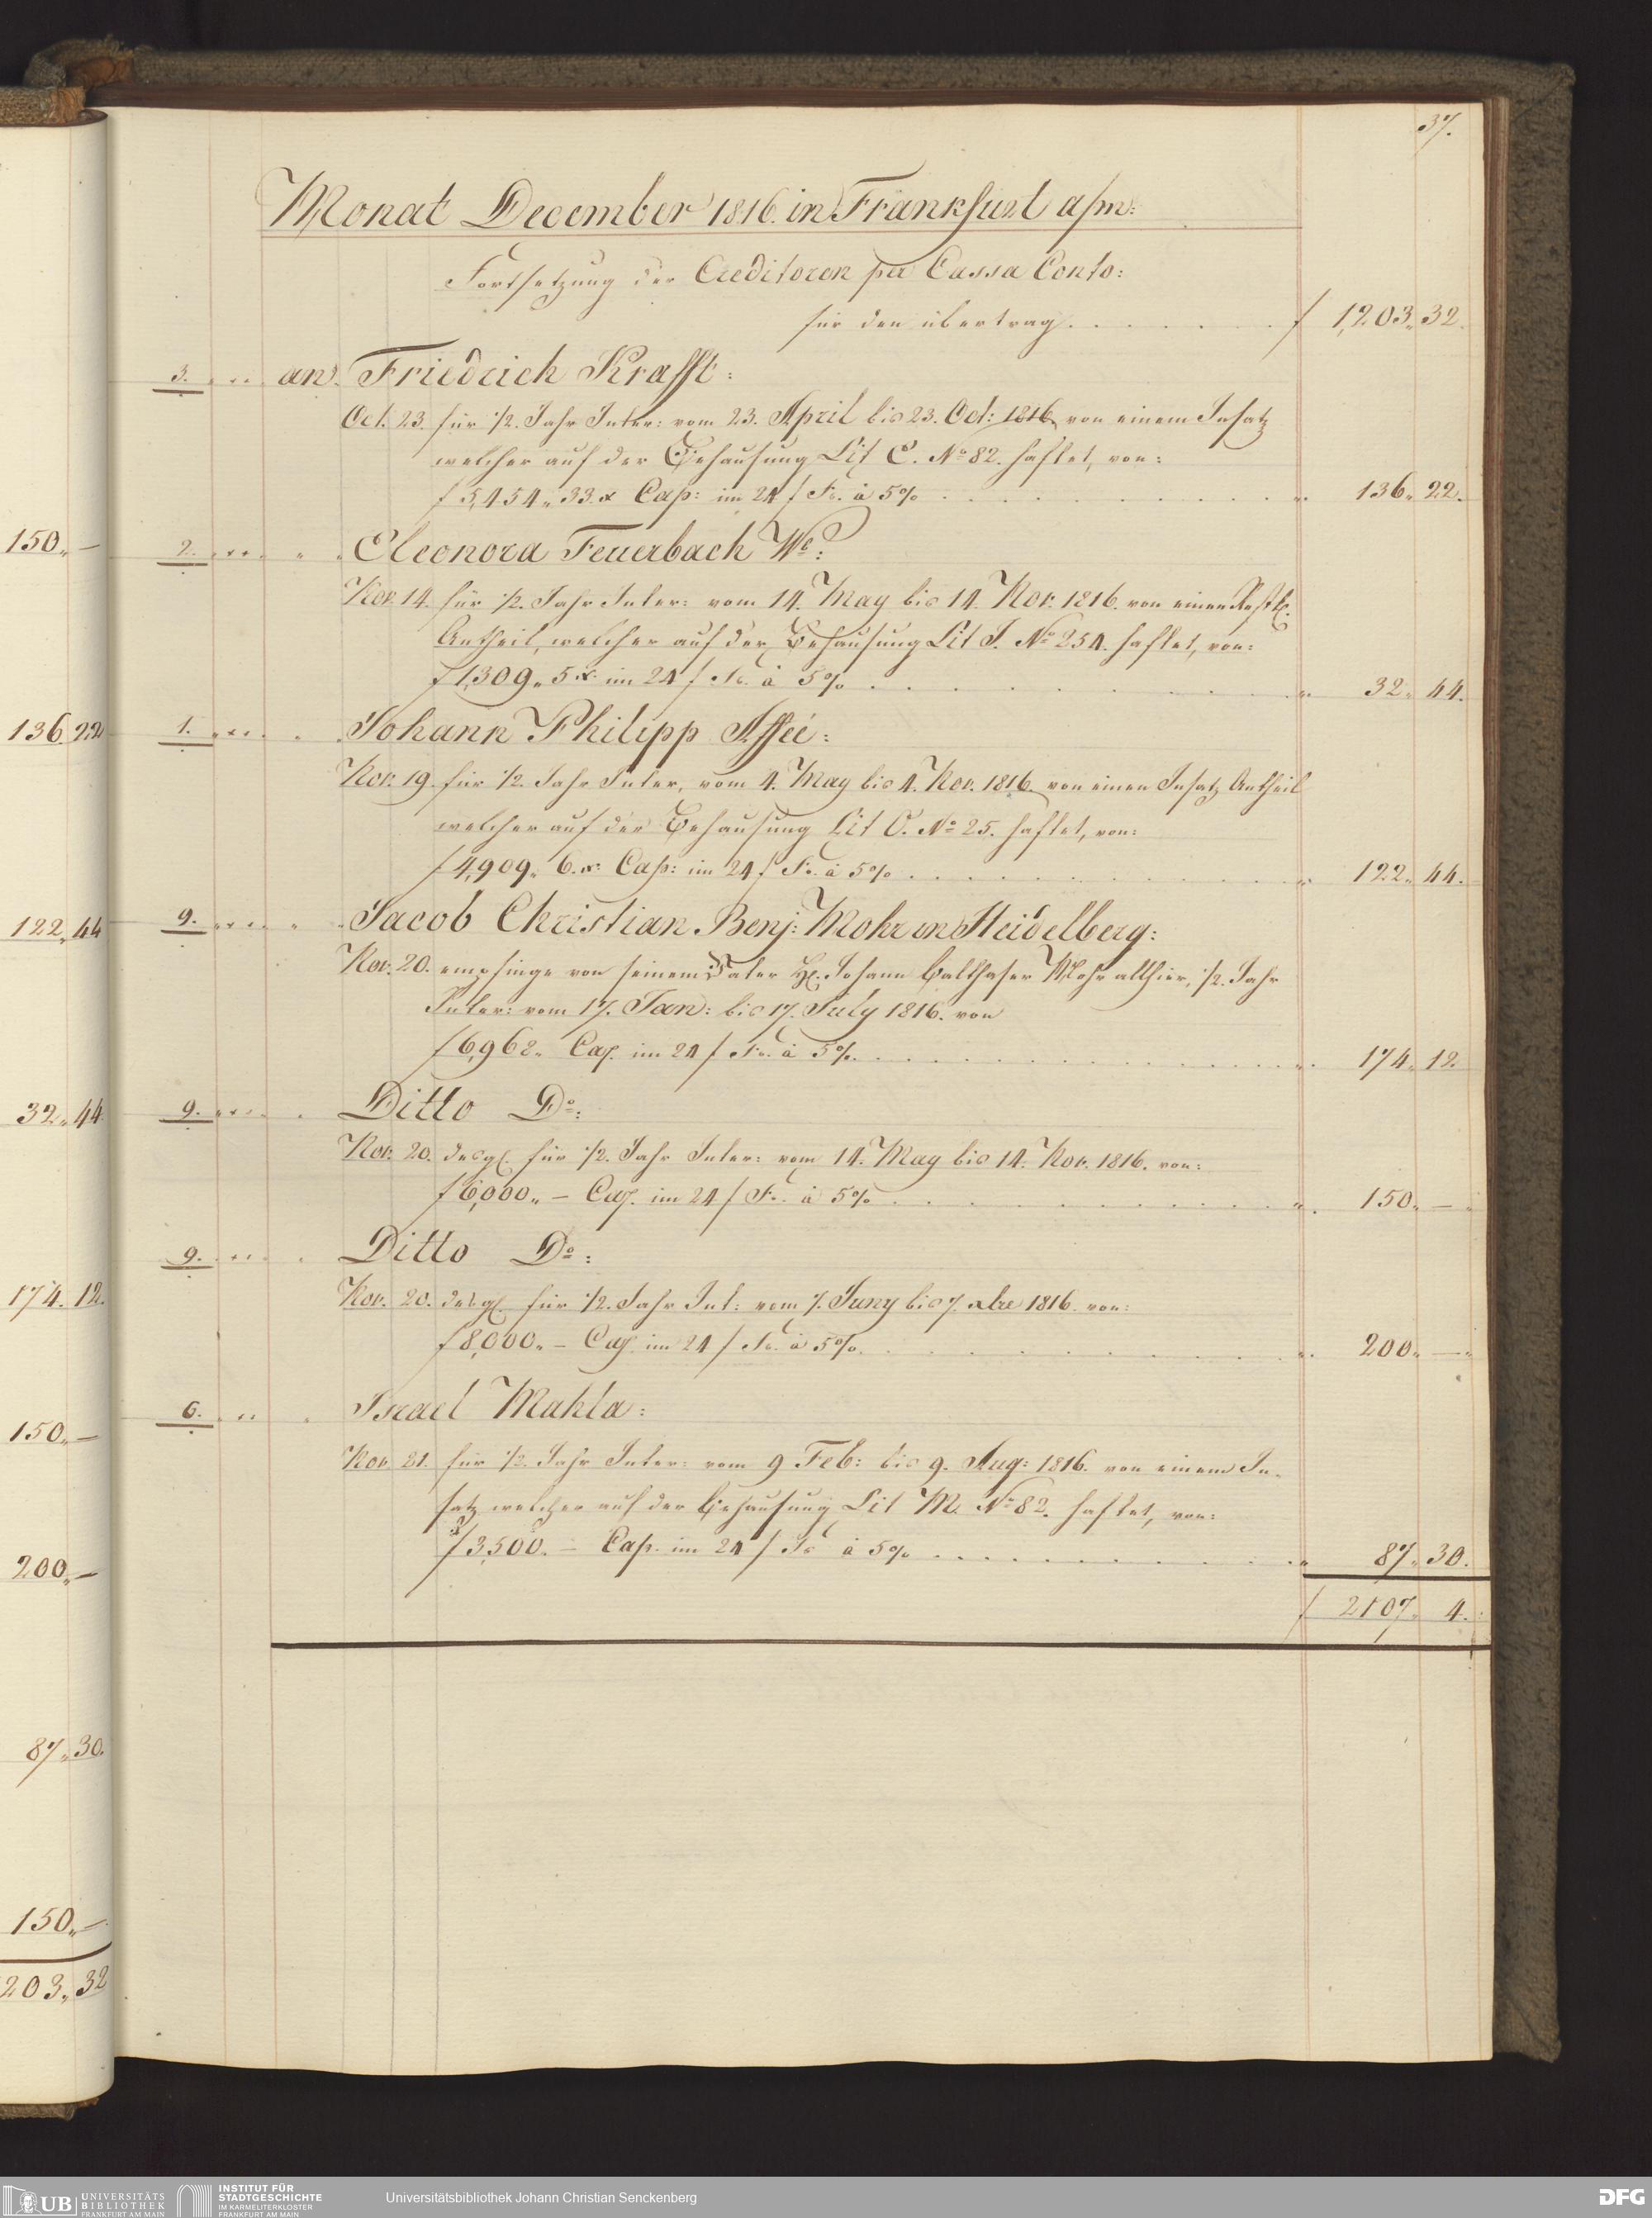 37.
Monat December 1816. in Frankfurt a/m:
Fortsetzung der Creditoren per Cassa Conto:
für den übertrag . . . . . . . f 1,203 „ 32.
3. „ „ an Friedrich Krafft:
Oct. 23. für 1/2. Jahr Inter: vom 23. April bis 23. Oct: 1816. von einem Insatz
welcher auf der Behausung Lit C. No 82. haftet, von:
f 5,454 „ 33. x Cap: im 24 f Fs. à 5% . . . . . . . „ 136 „ 22.
150 „ —
2. „ „ „ Eleonora Feuerbach We:
Nov. 14. für 1/2. Jahr Inter: vom 14. May bis 14. Nov. 1816. von einem
Antheil, welcher auf der Behausung Lit J. No 254. haftet, von:
f 1,309 „ 5 x im 24 f Fs. à 5% . . . . . . . „ 32 „ 44.
136. 22
1. „ „ „ Johann Philipp Affeé:
Nov. 19. für 1/2. Jahr Inter, vom 4. May bis 4. Nov. 1816. von einen Insatz Antheil
welcher auf der Behausung Lit O. No 25. haftet, von:
f 4,909 „ 6. x: Cap: im 24 f Fs. à 5% . . . . . . . „ 122 „ 44.
122 „ 44
9. „ „ „ Jacob Christian Benj: Mohr in Heidelberg:
Nov. 20. empfinge von seinem Vater H. Johann Balthaser Mohr allhier, 1/2. Jahr
Inter: vom 17. Jan: bis 17. July 1816. von
f 6,968 „ Cap. im 24 f Fs. à 5% . . . . . . . „ 174 „ 12.
32 „ 44
9. „ „ „ Ditto Do:
Nov. 20. desgl. für 1/2. Jahr Inter: vom 14. May bis 14. Nov. 1816. von:
f 6,000 „ — Cap. im 24 f Fs. à 5% . . . . . . . „ 150 „ —
9. „ „ „ Ditto Do:
174. 12.
Nov. 20. desgl. für 1/2. Jahr Int: vom 7. Juny bis 7. xbre 1816. von:
f 8,000 „ — Cap. im 24 f Fs. à 5% . . . . . . . „ 200 „ —
6. „ „ „ Israel Mahla:
150 „ —
Nov. 21. für 1/2. Jahr Inter: vom 9 Feb: bis 9. Aug: 1816. von einem In-
satz welcher auf der Behausung Lit M. No 82. haftet, von:
f 3,500. — Cap. im 24 f Fs à 5% . . . . . . . „ 87 „ 30.
200 „ —
f 2107 „ 4.
87 „ 30.
150 „ —
203 „ 32
UB UNIVERSITÄTS
BIBLIOTHEK
FRANKFURT AM MAIN
INSTITUT FÜR
STADTGESCHICHTE
IM KARMELITERKLOSTER
FRANKFURT AM MAIN
Universitätsbibliothek Johann Christian Senckenberg
DFG